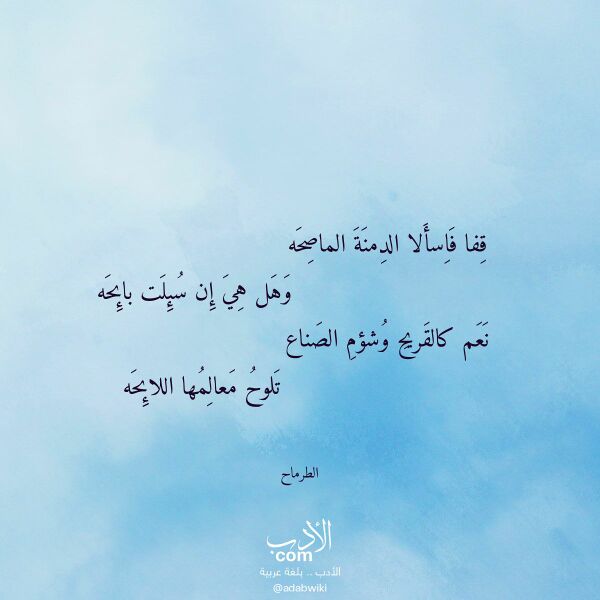 قِفا فَاِسأَلا الدِمنَةَ الماصِحَه
وَهَل هِيَ إِن سُئِلَت بائِحَه
نَعَم كالقَريحِ وُشؤمِ الصَناع
تَلوحُ مَعالِمُها اللائِحَه
الطرماح
الأدب
com
الأدب .. بلغة عربية
@adabwiki